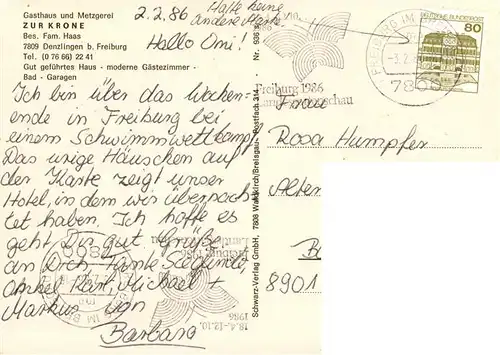 Gasthaus und Metzgerei
ZUR KRONE
Bes. Fam. Haas
7809 Denzlingen b. Freiburg
Tel. (0 76 66) 22 41
Gut geführtes Haus - moderne Gästezimmer -
Bad - Garagen
2.2.86
Hatte keine
andere Karte.
Hallo Omi!
Ich bin über das Wochen-
ende in Freiburg bei
einem Schwimmwettkampf.
Das urige Häuschen auf
der Karte zeigt unser
Hotel, in dem wir übernach-
tet haben. Ich hoffe es
geht Dir gut. Grüße
an Dich, Tante Sieglinde,
Onkel Karl, Michael +
Markus von
Barbara
Schwarz-Verlag GmbH, 7808 Waldkirch/Breisgau - Postfach 314 - Nr. 936
Freiburg 1986
Landesgartenschau
FREIBURG IM
-3.2.
7800
DEUTSCHE BUNDESPOST
80
Frau
Rosa Humpfer
Alten
8901
7800
Freiburg 1986
18.4.-12.10.
1986